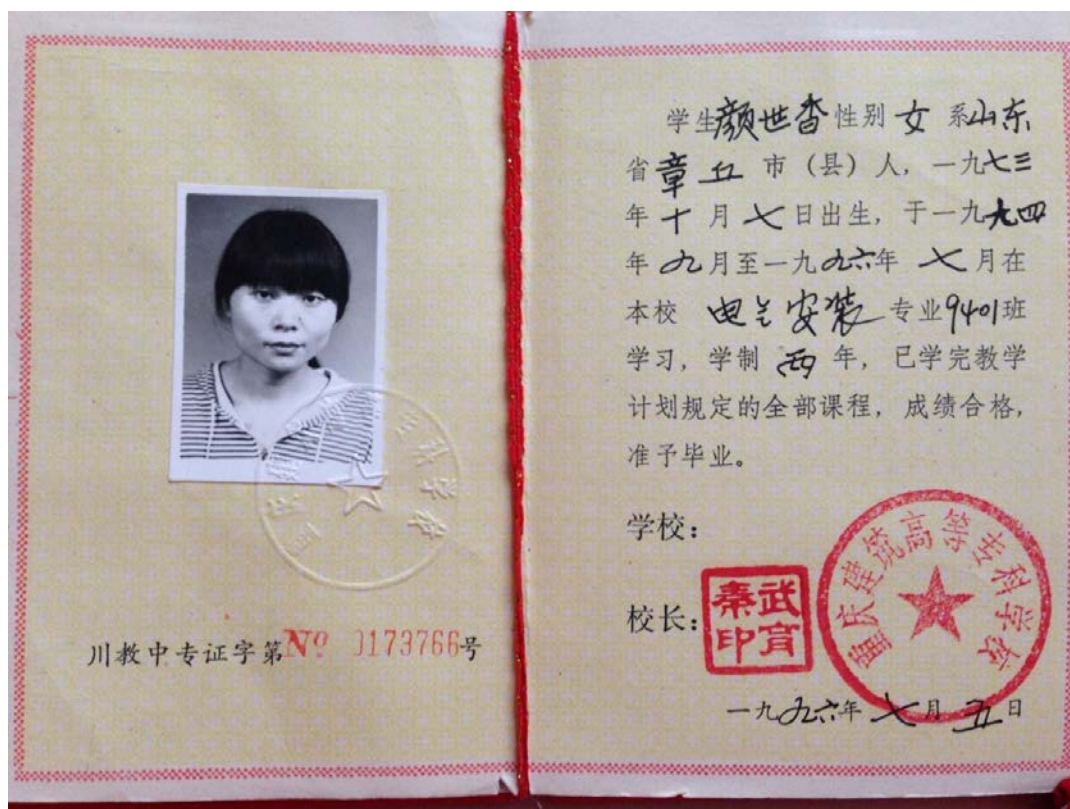 川教中专证字第№ 0173766号
学生颜世香性别 女 系山东
省章丘 市（县）人，一九七三
年十月七日出生，于一九九四
年九月至一九九六年 七月在
本校 电气安装 专业9401班
学习，学制 两 年，已学完教学
计划规定的全部课程，成绩合格，
准予毕业。
学校：
重庆建筑高等专科学校
校长：
武育秦印
一九九六年七月五日